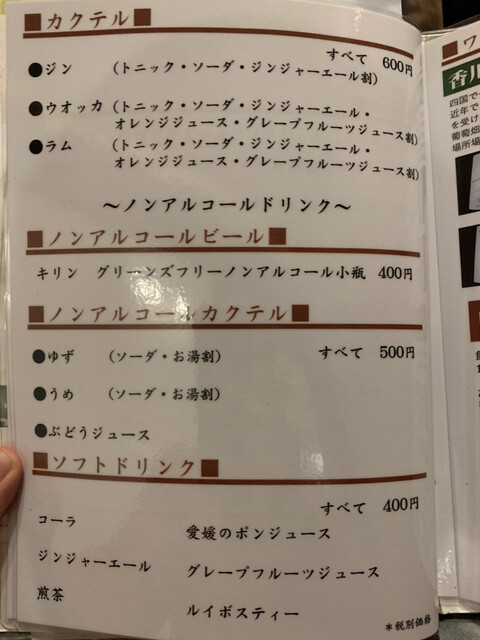 ■カクテル■
すべて 600円
●ジン (トニック・ソーダ・ジンジャーエール割)
●ウオッカ (トニック・ソーダ・ジンジャーエール・
オレンジジュース・グレープフルーツジュース割)
●ラム (トニック・ソーダ・ジンジャーエール・
オレンジジュース・グレープフルーツジュース割)
～ノンアルコールドリンク～
■ノンアルコールビール■
キリン グリーンズフリーノンアルコール小瓶 400円
■ノンアルコールカクテル■
●ゆず (ソーダ・お湯割) すべて 500円
●うめ (ソーダ・お湯割)
●ぶどうジュース
■ソフトドリンク■
すべて 400円
コーラ 愛媛のポンジュース
ジンジャーエール グレープフルーツジュース
煎茶 ルイボスティー
*税別価格
■ワ
香川
四国で
近年で
を受け
葡萄畑
場所場